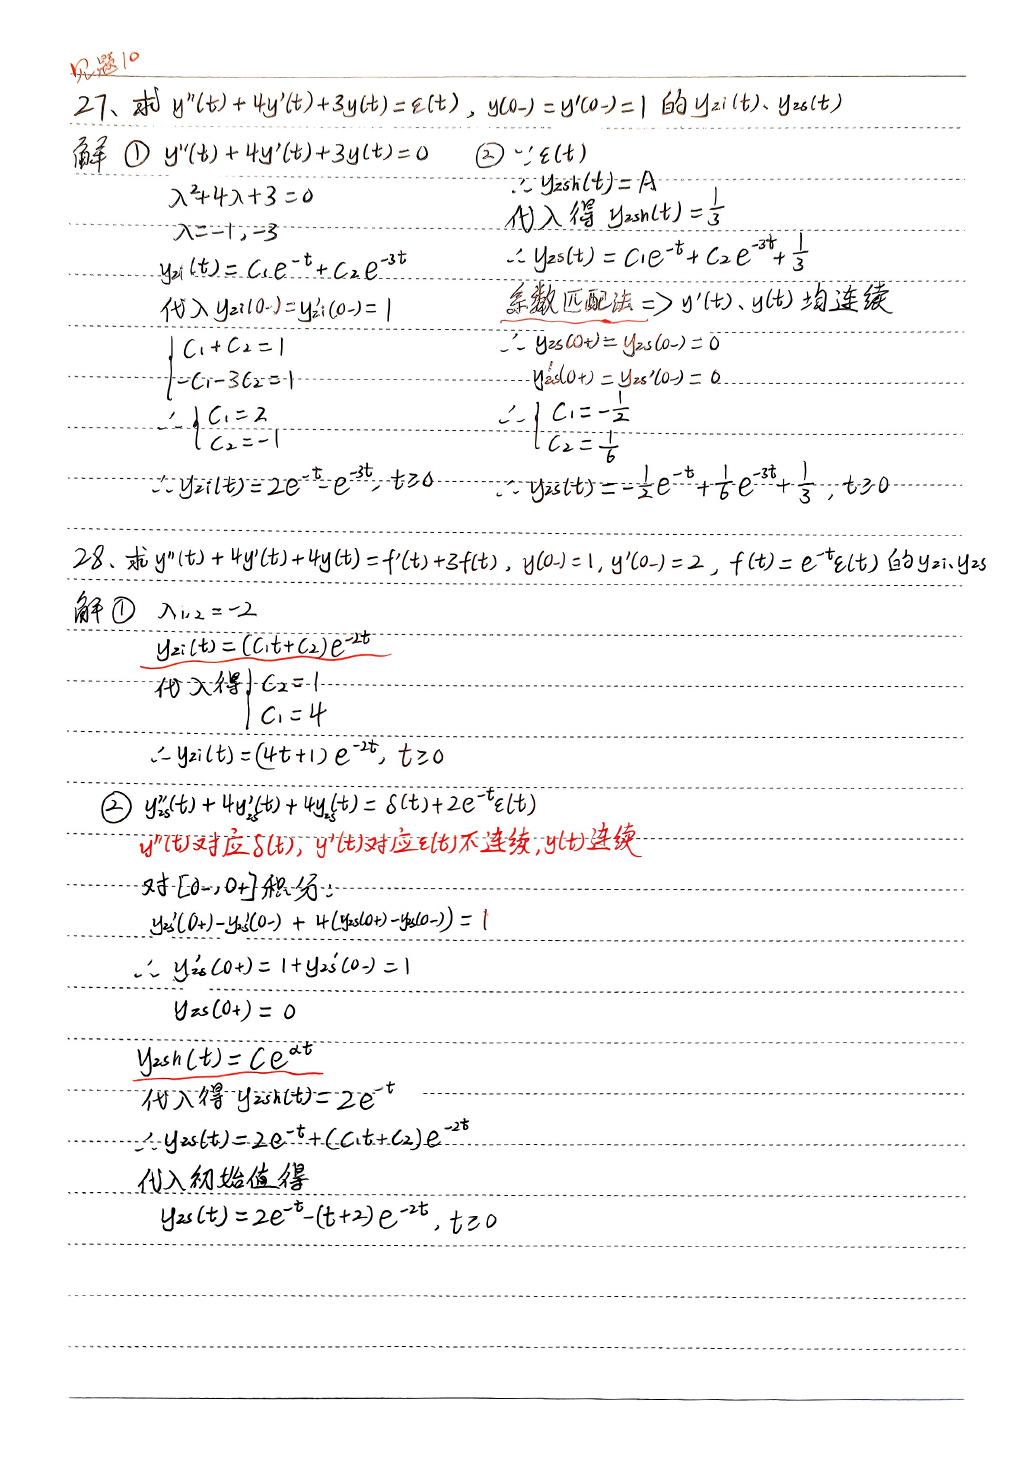 见题10
27、求 y''(t)+4y'(t)+3y(t)=ε(t), y(0-)=y'(0-)=1 的 yzi(t)、yzs(t)
解 ① y''(t)+4y'(t)+3y(t)=0
λ²+4λ+3=0
λ=-1,-3
yzi(t)=C₁e^-t+C₂e^-3t
代入 yzi(0-)=yzi'(0-)=1
{ C₁+C₂=1
-C₁-3C₂=1
∴ { C₁=2
C₂=-1
∴ yzi(t)=2e^-t-e^-3t, t≥0
② ∵ ε(t)
∴ yzsh(t)=A
代入得 yzsh(t)=1/3
∴ yzs(t)=C₁e^-t+C₂e^-3t+1/3
系数匹配法 => y'(t)、y(t) 均连续
∴ yzs(0+)=yzs(0-)=0
yzs'(0+)=yzs'(0-)=0
∴ { C₁=-1/2
C₂=1/6
∴ yzs(t)=-1/2e^-t+1/6e^-3t+1/3, t≥0
28、求 y''(t)+4y'(t)+4y(t)=f'(t)+3f(t), y(0-)=1, y'(0-)=2, f(t)=e^-tε(t) 的 yzi、yzs
解 ① λ₁,₂=-2
yzi(t)=(C₁t+C₂)e^-2t
代入得 { C₂=1
C₁=4
∴ yzi(t)=(4t+1)e^-2t, t≥0
② yzs''(t)+4yzs'(t)+4yzs(t)=δ(t)+2e^-tε(t)
y''(t)对应δ(t), y'(t)对应ε(t)不连续, y(t)连续
对[0-,0+]积分:
yzs'(0+)-yzs'(0-)+4(yzs(0+)-yzs(0-))=1
∴ yzs'(0+)=1+yzs'(0-)=1
yzs(0+)=0
yzsh(t)=Ce^αt
代入得 yzsh(t)=2e^-t
∴ yzs(t)=2e^-t+(C₁t+C₂)e^-2t
代入初始值得
yzs(t)=2e^-t-(t+2)e^-2t, t≥0